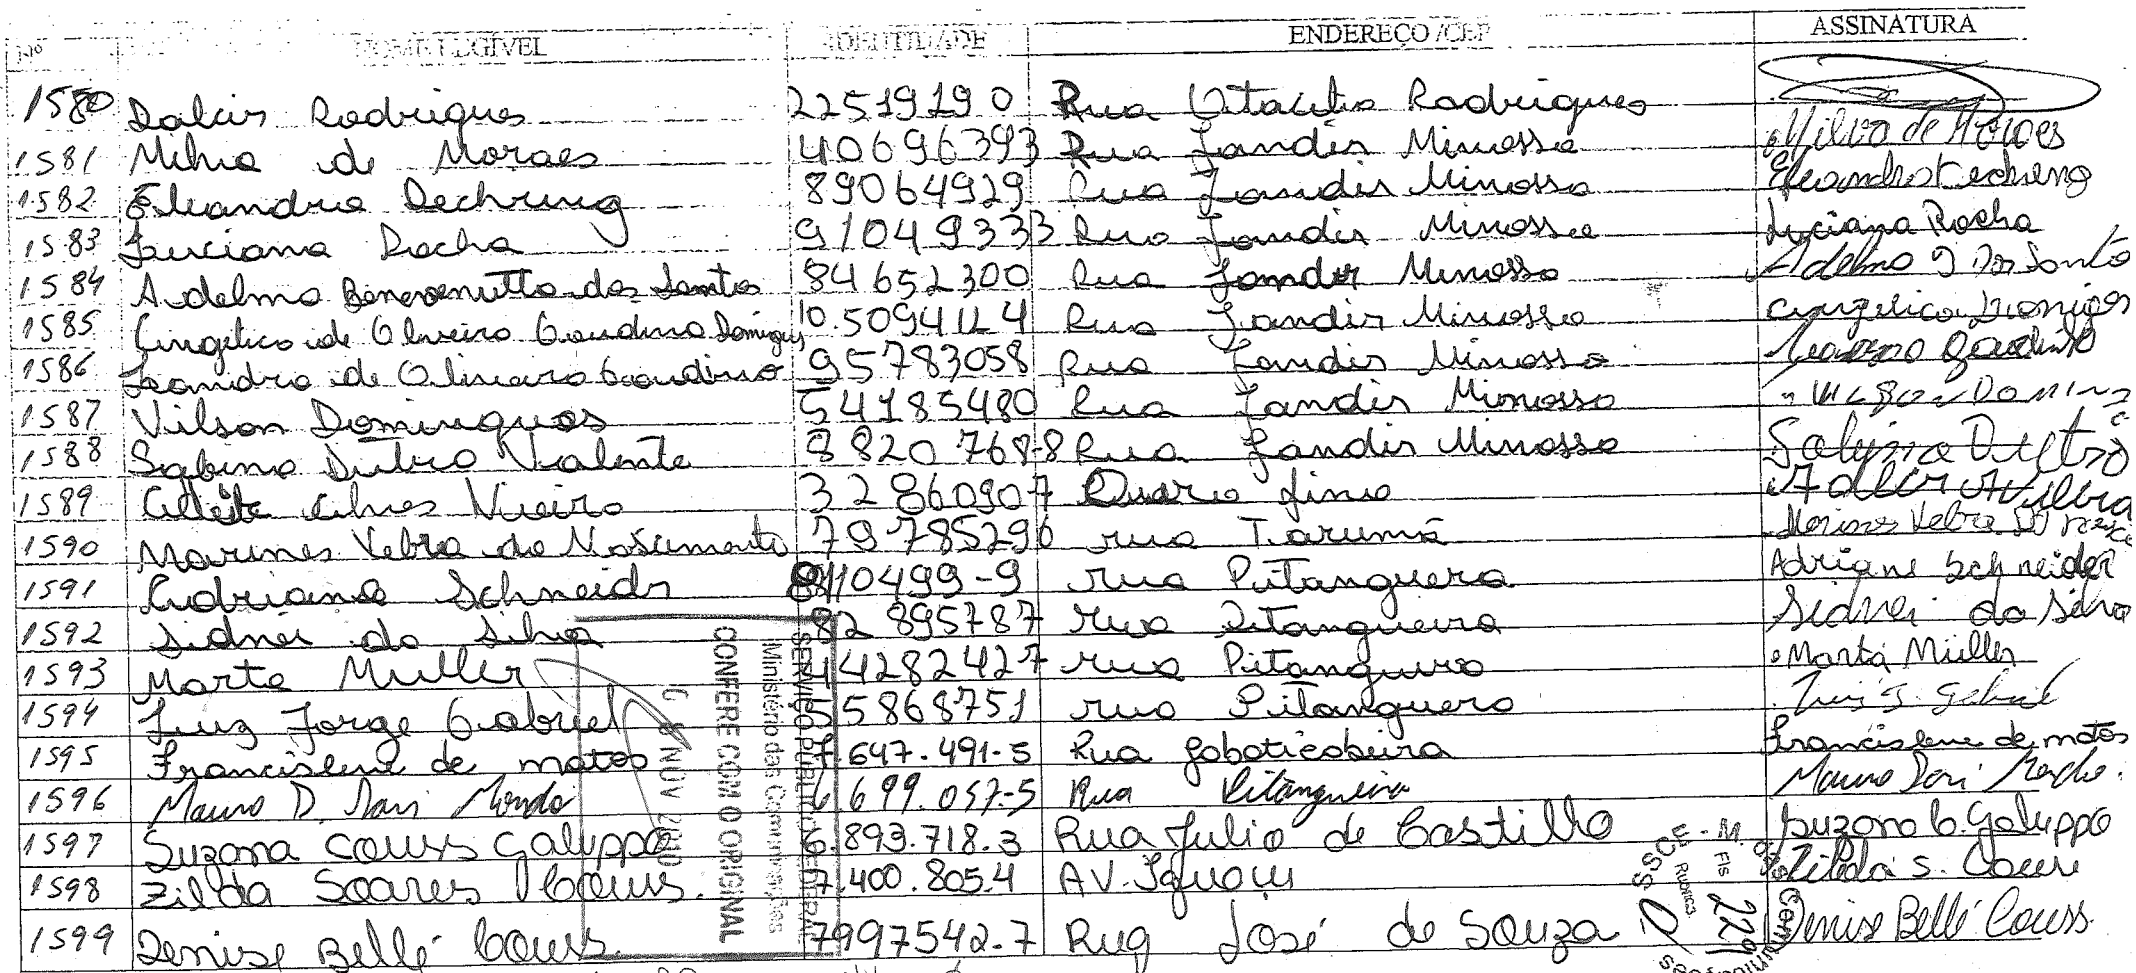 Nº NOME LEGÍVEL IDENTIDADE ENDEREÇO /CEP ASSINATURA
1580 Dalcir Rodrigues 22519190 Rua Otacilio Rodrigues
1581 Milva de Moraes 40696393 Rua Jandir Minosso Milva de Moraes
1582 Eleandra Dechring 89064929 Rua Jandir Minosso
1583 Luciana Rocha 91049333 Rua Jandir Minosso Luciana Rocha
1584 Adelmo Benevenutto dos Santos 84652300 Rua Jandir Minosso Adelmo Dos Santo
1585 Angelica de Oliveira Gaudino Domingues Rua Jandir Minosso Angelica
1586 Leandro de Oliveira Gaudino 95783058 Rua Jandir Minosso Leandro Gaudino
1587 Vilson Domingues 54185480 Rua Jandir Minosso
1588 Sabino Dutra Valente 8820768-8 Rua Jandir Minosso
1589 Alves Vieira 32860907
1590 Marines Vebra do Nascimento 79785296 rua Tarumã
1591 Adriana Schneidr 10499-9 rua Pitanguera Adriane Schneider
1592 Sidnei da Silva 82895787 rua Pitangueira Sidnei da Silva
1593 Marta Muller 44282427 rua Pitanguera Marta Müller
1594 Luiz Jorge Gabriel 55868751 rua Pitanguera
1595 Francislene de matos 7.647.491-5 Rua Jaboticabeira Francislene de matos
1596 Mauro D. 6.699.057-5 Rua Pitangueira Mauro
1597 Suzana Couss Galuppo 6.893.718.3 Rua Julio de Castilho Suzana C. Galuppo
1598 Zilda Soares Couss. 7.400.805.4 AV. Iguaçu Zilda S. Couss
1599 Denise Bellé Couss. 7997542-7 Rua José de Souza Denise Bellé Couss.
SERVIÇO PÚBLICO FEDERAL
Ministério das Comunicações
CONFERE COM O ORIGINAL
NOV
SSCE - M. das Comunicações
Fls 2291
Rubrica